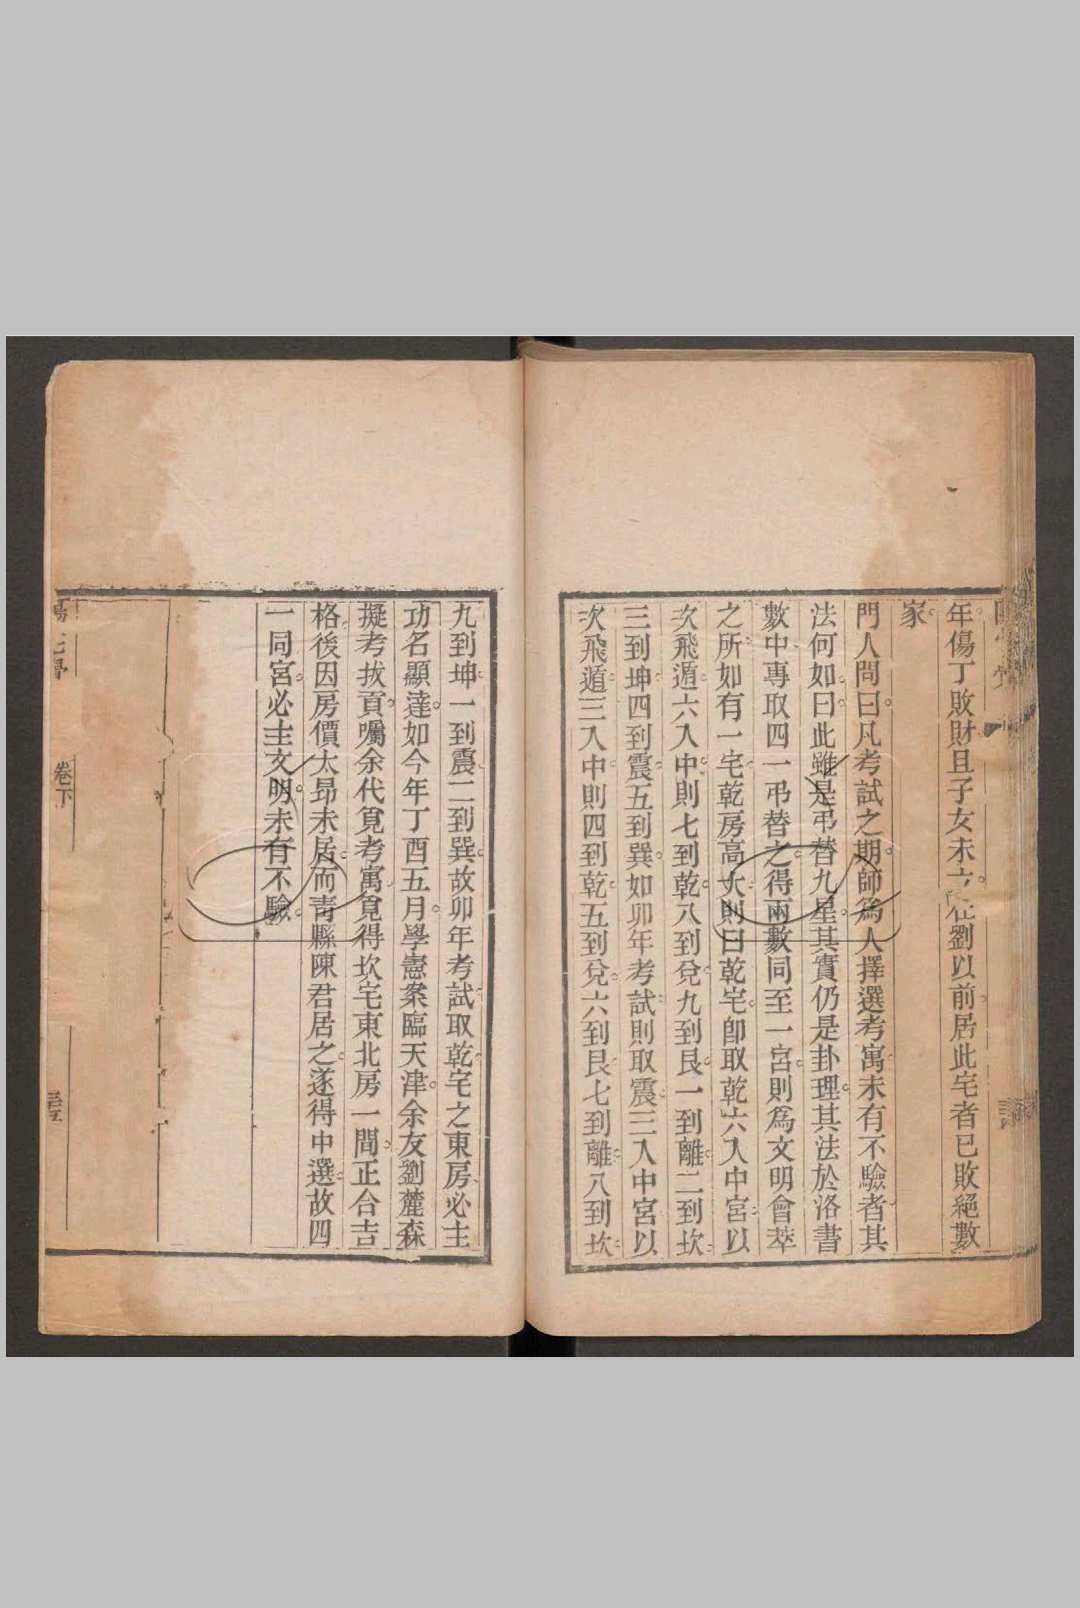 年傷丁敗財且子女未立在劉以前居此宅者已敗絕數
家
門人問曰凡考試之期師為人擇選考寓未有不驗者其
法何如曰此雖是弔替九星其實仍是卦理其法於洛書
數中專取四一弔替之得兩數同至一宮則為文明會萃
之所如有一宅乾房高大則曰乾宅卽取乾六入中宮以
次飛遁六入中則七到乾八到兌九到艮一到離二到坎
三到坤四到震五到巽如卯年考試則取震三入中宮以
次飛遁三入中則四到乾五到兌六到艮七到離八到坎
九到坤一到震二到巽故卯年考試取乾宅之東房必主
功名顯達如今年丁酉五月學憲案臨天津余友劉麓森
擬考拔貢囑余代覓考寓覓得坎宅東北房一間正合吉
格後因房價太昂未居而青縣陳君居之遂得中選故四
一同宮必主文明未有不驗
卷下